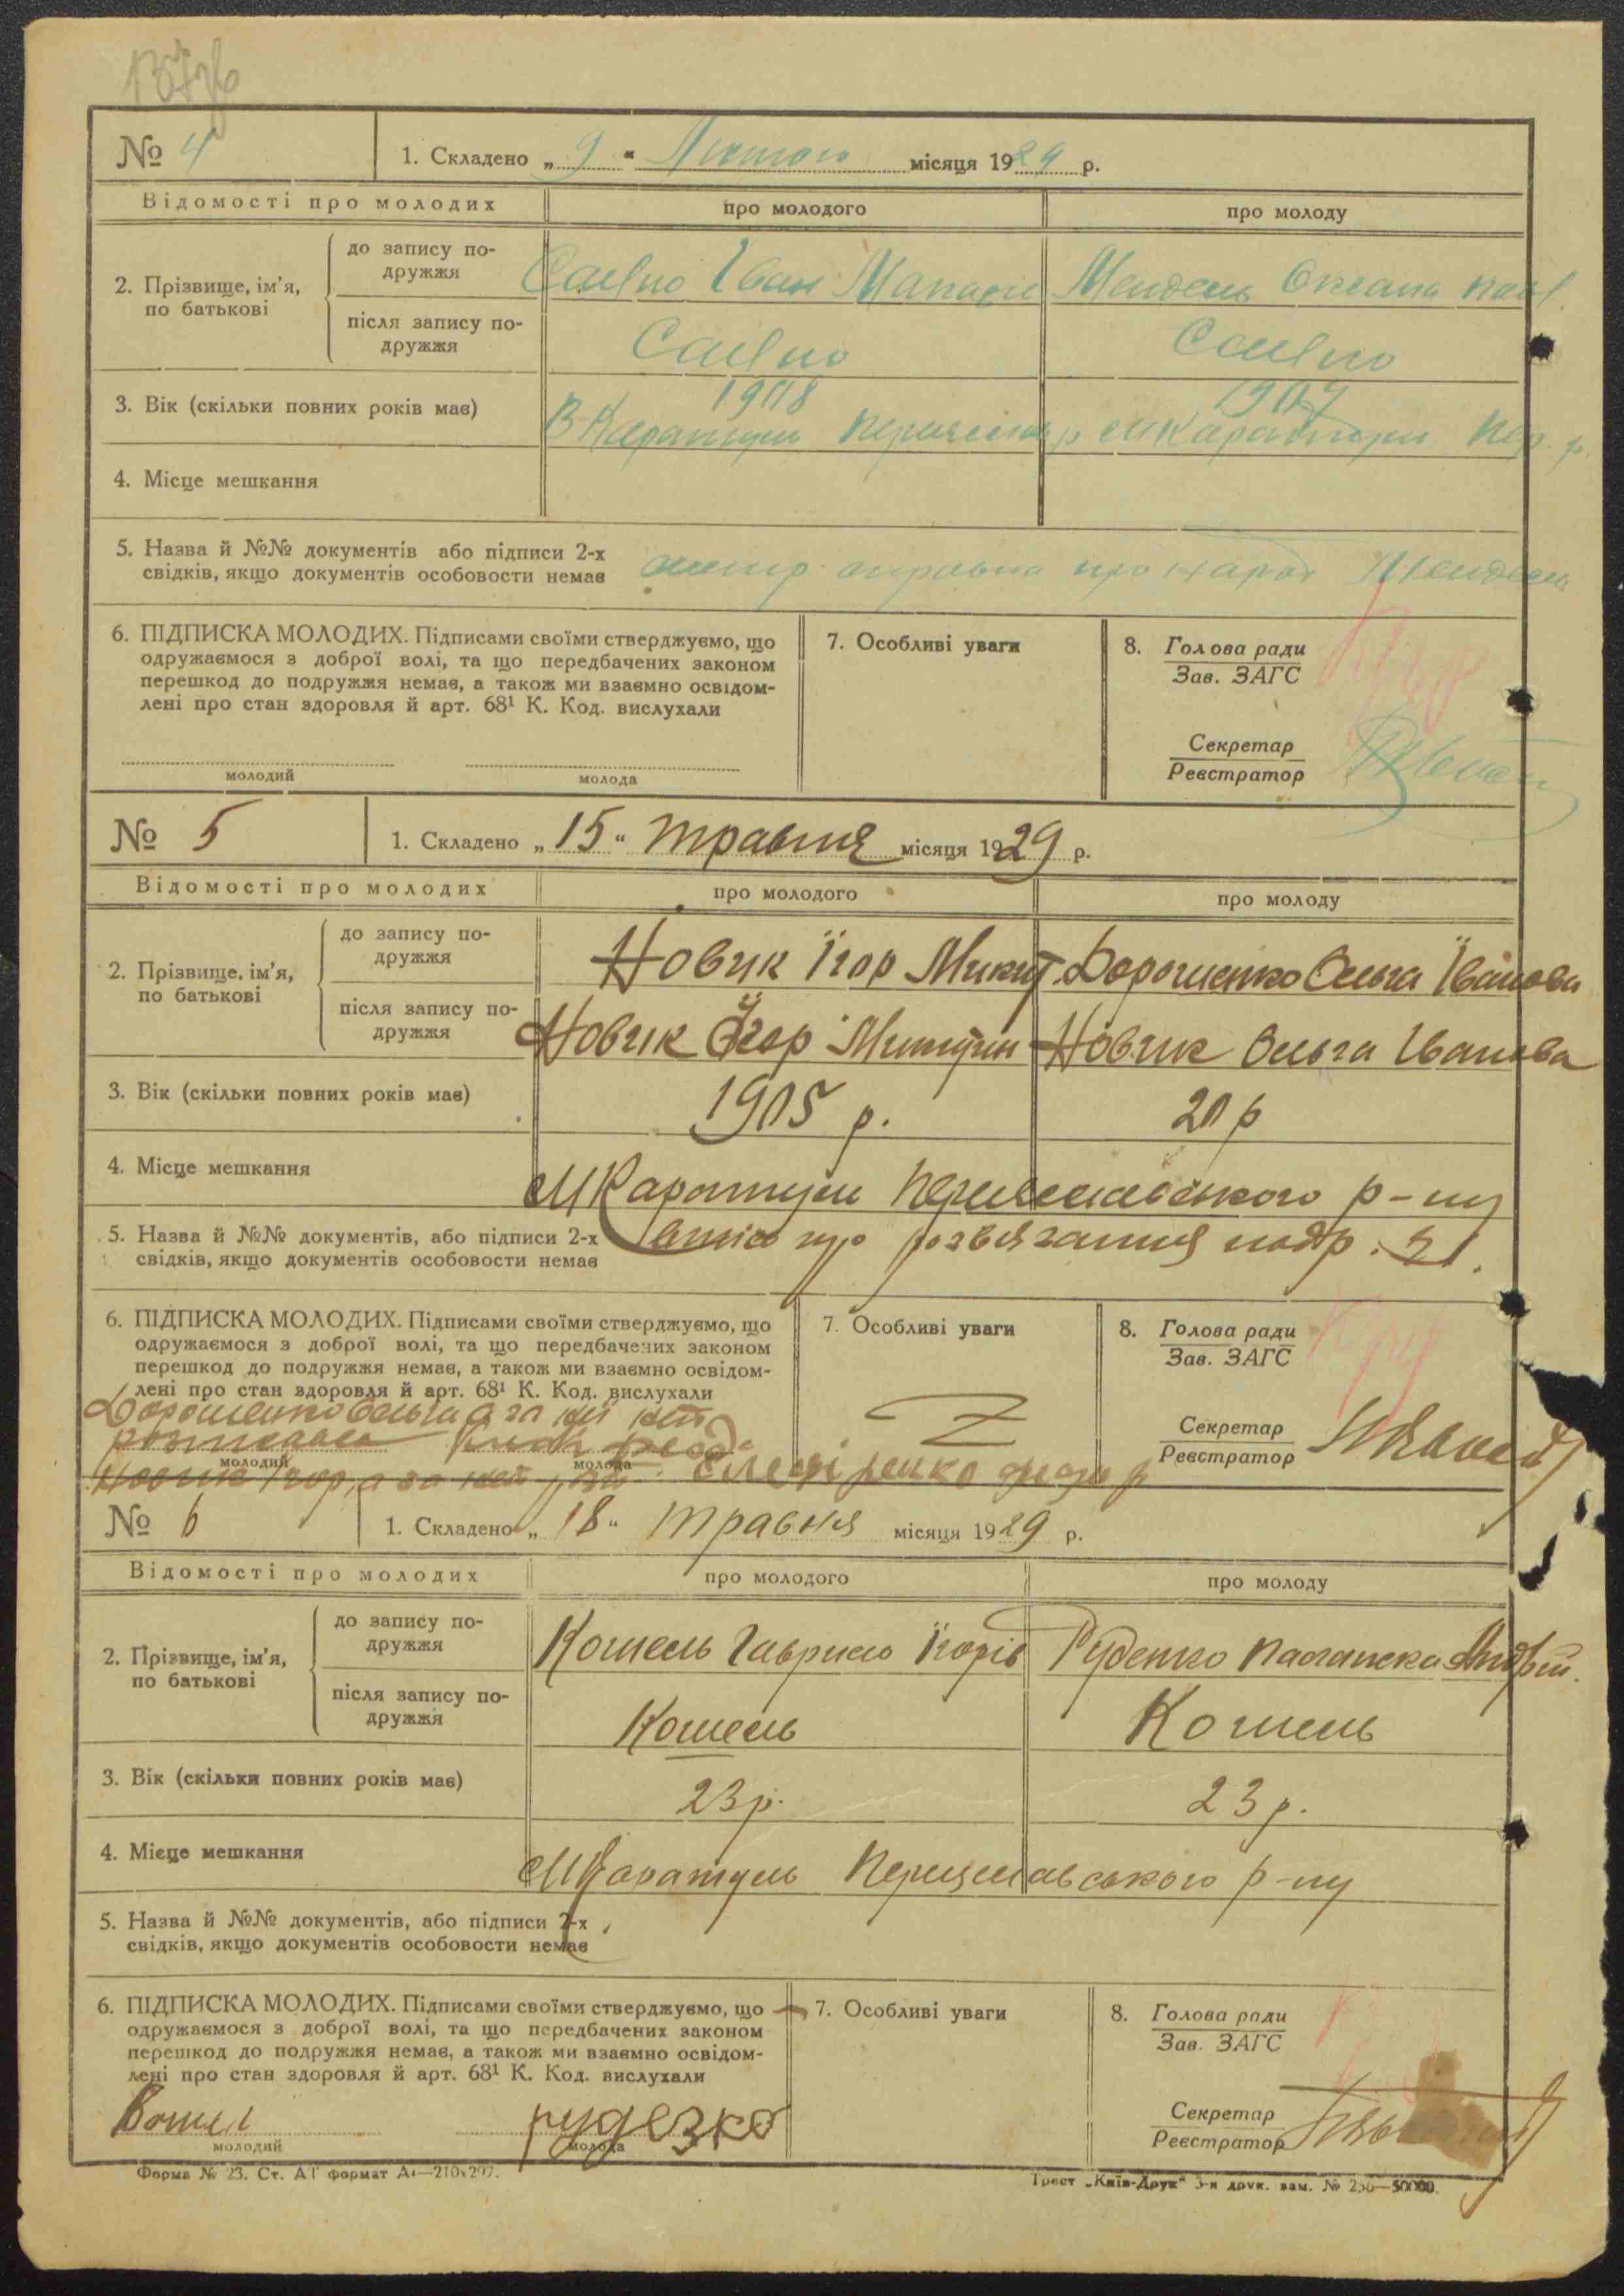 № 4
1. Складено „ 9 “ Лютого місяця 1929 р.
Відомості про молодих
про молодого
про молоду
2. Прізвище, ім'я, по батькові
до запису по-
дружжя
Іван
Оксана Павл.
після запису по-
дружжя
3. Вік (скільки повних років має)
1908
1907
Каратуль
Каратуль Пер. р.
4. Місце мешкання
5. Назва й №№ документів або підписи 2-х
свідків, якщо документів особовости немає
про народ
6. ПІДПИСКА МОЛОДИХ. Підписами своїми стверджуємо, що
одружаємося з доброї волі, та що передбачених законом
перешкод до подружжя немає, а також ми взаємно освідом-
лені про стан здоровля й арт. 68¹ К. Код. вислухали
молодий
молода
7. Особливі уваги
8. Голова ради
Зав. ЗАГС
Секретар
Реєстратор
№ 5
1. Складено „ 15 “ травня місяця 1929 р.
Відомості про молодих
про молодого
про молоду
2. Прізвище, ім'я,
по батькові
до запису по-
дружжя
Новик Їгор Микит.
Дорошенко Ольга Їванова
після запису по-
дружжя
Новик Їгор Микитин
Новик Ольга Іванова
3. Вік (скільки повних років має)
1905 р.
20 р
4. Місце мешкання
м Каратуль Переяславського р-ну
5. Назва й №№ документів, або підписи 2-х
свідків, якщо документів особовости немає
витяг про розвязання подр.
6. ПІДПИСКА МОЛОДИХ. Підписами своїми стверджуємо, що
одружаємося з доброї волі, та що передбачених законом
перешкод до подружжя немає, а також ми взаємно освідом-
лені про стан здоровля й арт. 68¹ К. Код. вислухали
Дорошенко Ольга а за неї
розписався
молодий
молода
Новик Ігор, а за
7. Особливі уваги
8. Голова ради
Зав. ЗАГС
Секретар
Реєстратор
№ 6
1. Складено „ 18 “ травня місяця 1929 р.
Відомості про молодих
про молодого
про молоду
2. Прізвище, ім'я,
по батькові
до запису по-
дружжя
Кошель Гаврило Їгорів
Руденко Параска Андрій.
після запису по-
дружжя
Кошель
Кошель
3. Вік (скільки повних років має)
23 р.
23 р.
4. Місце мешкання
м Каратуль Переяславського р-ну
5. Назва й №№ документів, або підписи 2-х
свідків, якщо документів особовости немає
6. ПІДПИСКА МОЛОДИХ. Підписами своїми стверджуємо, що
одружаємося з доброї волі, та що передбачених законом
перешкод до подружжя немає, а також ми взаємно освідом-
лені про стан здоровля й арт. 68¹ К. Код. вислухали
молодий
молода
7. Особливі уваги
8. Голова ради
Зав. ЗАГС
Секретар
Реєстратор
Форма № 23. Ст. АГ формат А₄—210×297.
Трест „Київ-Друк“ 3-я друк. зам. № 250—50000.